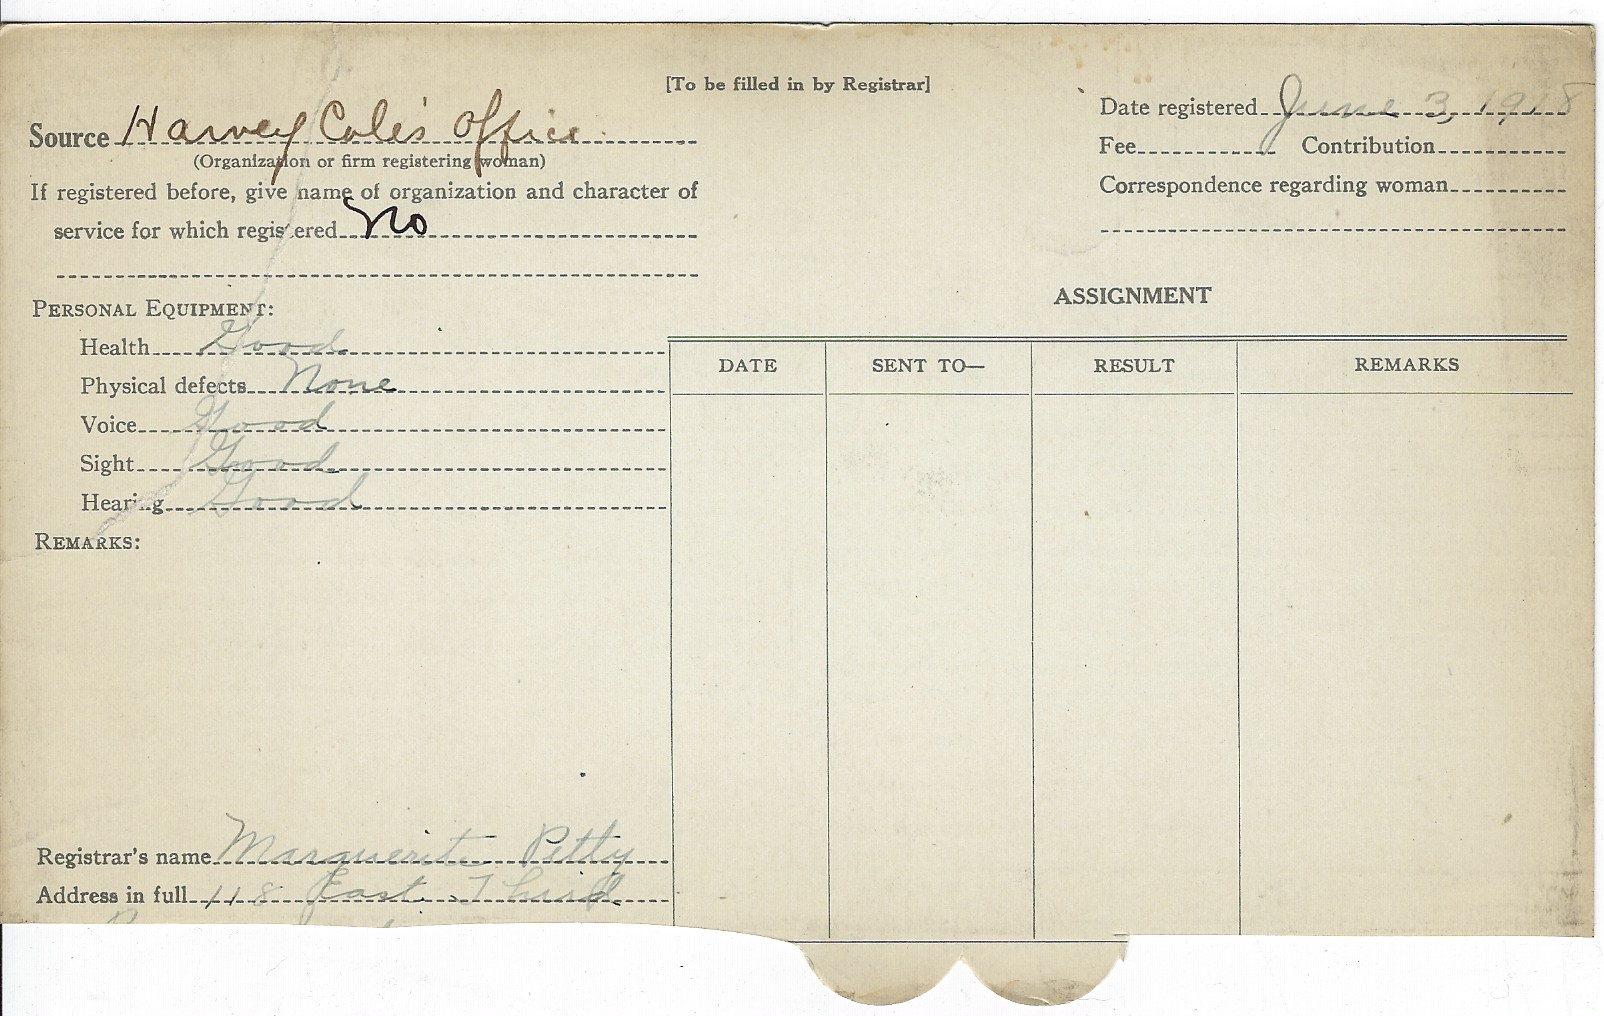 [To be filled in by Registrar]
Source Harvey Cole's Office
(Organization or firm registering woman)
If registered before, give name of organization and character of
service for which registered No
Date registered June 3, 1918
Fee Contribution
Correspondence regarding woman
PERSONAL EQUIPMENT:
Health Good
Physical defects None
Voice Good
Sight Good
Hearing Good
REMARKS:
ASSIGNMENT
DATE SENT TO— RESULT REMARKS
Registrar's name Marguerite Petty
Address in full 118 East Third